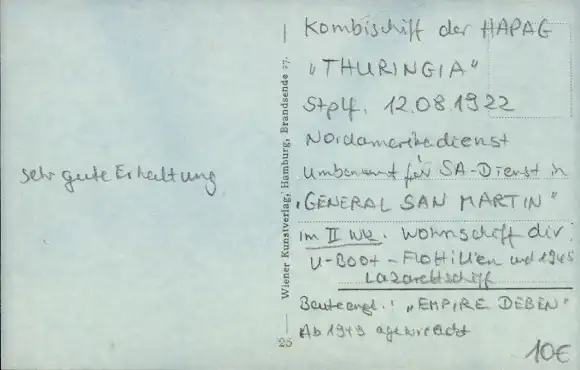 sehr gute Erhaltung
Wiener Kunstverlag, Hamburg, Brandsende 27.
25
Kombischiff der HAPAG
„THURINGIA"
Stplf. 12.08.1922
Nordamerikadienst
Umbenannt für SA-Dienst in
„GENERAL SAN MARTIN"
im II WK. Wohnschiff div.
U-Boot-Flottillen und 1945
Lazarettschiff
Beuteengl.: „EMPIRE DEBEN"
Ab 1949 abgewrackt
10€